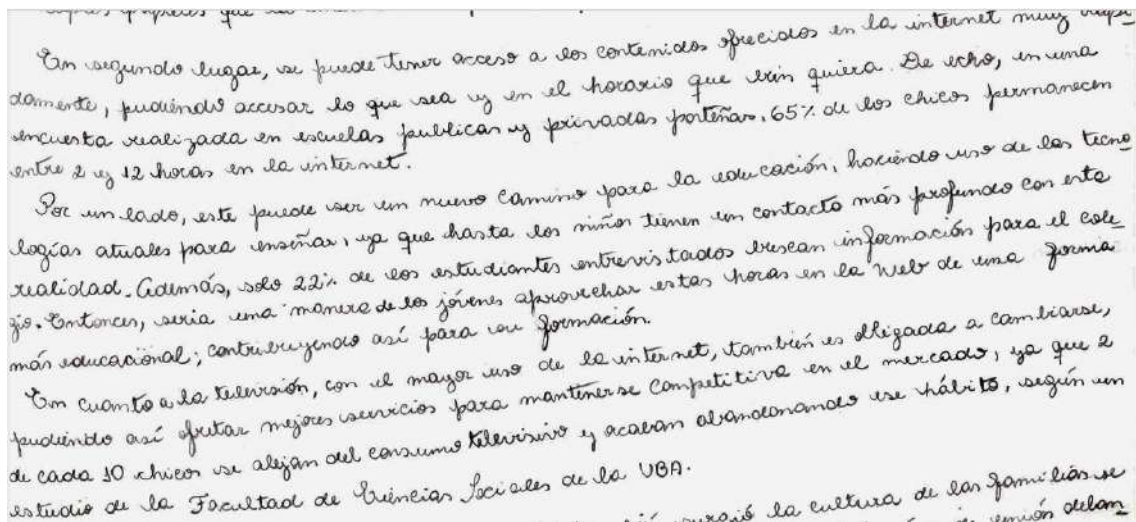 En segundo lugar, se puede tener acceso a los contenidos ofrecidos en la internet muy rapi
damente, pudiendo accesar lo que sea y en el horario que quiera. De echo, en una
encuesta realizada en escuelas publicas y privadas porteñas, 65% de los chicos permanecen
entre 2 y 12 horas en la internet.
Por un lado, este puede ser un nuevo camino para la educación, haciendo uso de las tecno
logías atuales para enseñar, ya que hasta los niños tienen un contacto más profundo con esta
realidad. Además, solo 22% de los estudiantes entrevistados buscan información para el cole
gio. Entonces, seria una manera de los jóvenes aprovechar estas horas en la web de una forma
más educacional; contribuyendo así para su formación.
En cuanto a la televisión, con el mayor uso de la internet, también es obligada a cambiarse,
pudiendo así ofretar mejores servicios para mantenerse competitiva en el mercado, ya que 2
de cada 10 chicos se alejan del consumo televisivo y acaban abandonando ese hábito, según un
estudio de la Facultad de Ciências Sociales de la UBA.
surgió la cultura de las familias se